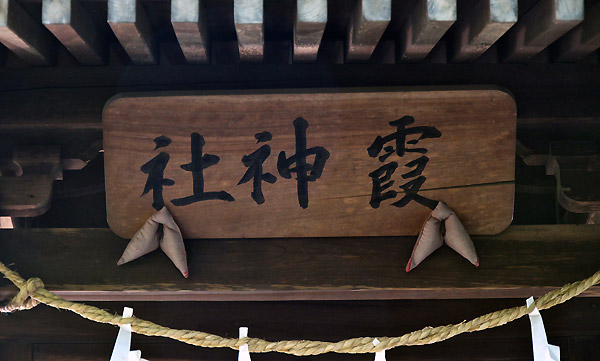 霞神社